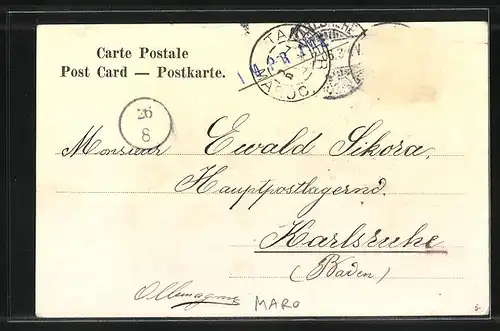 Carte Postale
Post Card — Postkarte.
TANGER
MAROC
26
8
Monsieur Ewald Sikora.
Hauptpostlagernd.
Karlsruhe
(Baden)
Allemagne
MARO